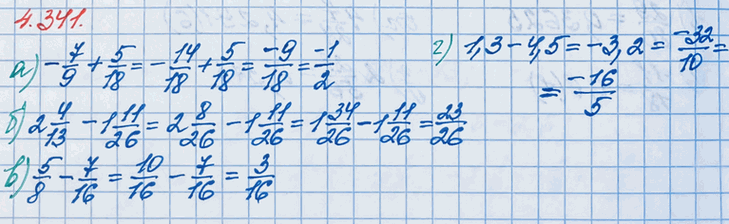 4.341.
а) -7/9 + 5/18 = -14/18 + 5/18 = -9/18 = -1/2
б) 2 4/13 - 1 11/26 = 2 8/26 - 1 11/26 = 1 34/26 - 1 11/26 = 23/26
в) 5/8 - 7/16 = 10/16 - 7/16 = 3/16
г) 1,3 - 4,5 = -3,2 = -32/10 =
= -16/5